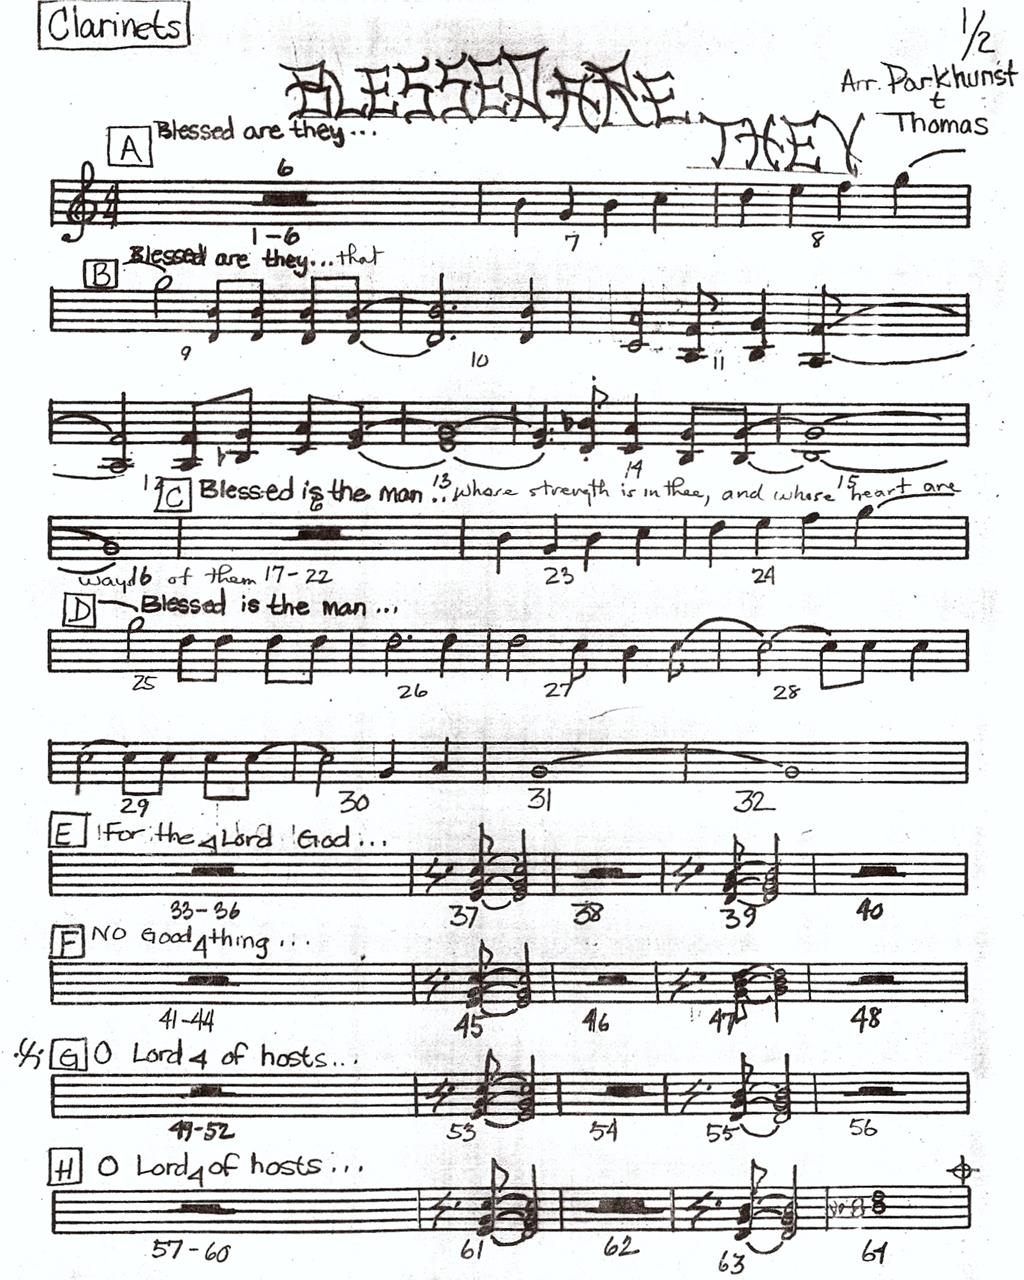 Clarinets
1/2
BLESSED ARE
THEY
Arr. Parkhurst
+
Thomas
A Blessed are they...
6
1-6 7 8
B Blessed are they... that
9 10 11
12 13 14 15
C Blessed is the man... whose strength is in thee, and whose heart are
6
ways 16 of them 17-22 23 24
D Blessed is the man...
25 26 27 28
29 30 31 32
E For the Lord God...
4
33-36 37 38 39 40
F No Good thing...
4
41-44 45 46 47 48
G O Lord of hosts...
4
49-52 53 54 55 56
H O Lord of hosts...
4
57-60 61 62 63 64